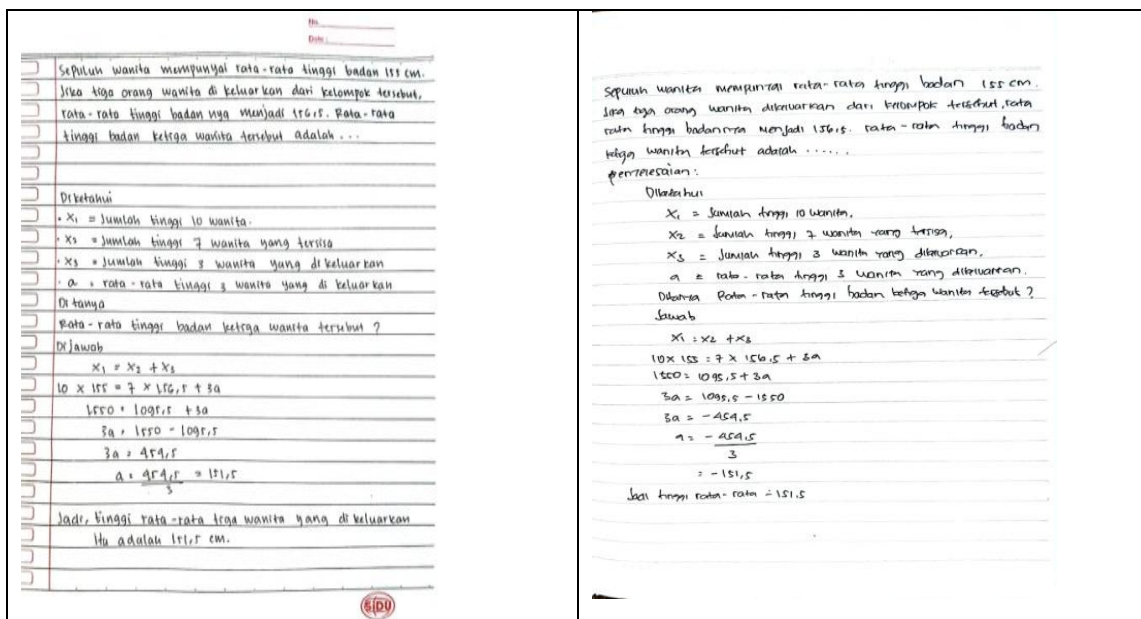 No.
Date:
Sepuluh wanita mempunyai rata-rata tinggi badan 155 cm.
Jika tiga orang wanita di keluarkan dari kelompok tersebut,
rata-rata tinggi badan nya menjadi 156,5. Rata-rata
tinggi badan ketiga wanita tersebut adalah ...
Diketahui
• X₁ = Jumlah tinggi 10 wanita.
• X₂ = Jumlah tinggi 7 wanita yang tersisa
• X₃ = Jumlah tinggi 3 wanita yang di keluarkan
• a = rata-rata tinggi 3 wanita yang di keluarkan
Di tanya
Rata-rata tinggi badan ketiga wanita tersebut ?
Di Jawab
X₁ = X₂ + X₃
10 × 155 = 7 × 156,5 + 3a
1550 = 1095,5 + 3a
3a = 1550 - 1095,5
3a = 454,5
a = 454,5 = 151,5
3
Jadi, tinggi rata-rata tiga wanita yang di keluarkan
itu adalah 151,5 cm.
SIDU
Sepuluh wanita mempunyai rata-rata tinggi badan 155 cm.
Jika tiga orang wanita dikeluarkan dari kelompok tersebut, rata
rata tinggi badannya menjadi 156,5. rata-rata tinggi badan
ketiga wanita tersebut adalah ......
penyelesaian :
Diketahui
X₁ = Jumlah tinggi 10 wanita,
X₂ = Jumlah tinggi 7 wanita yang tersisa,
X₃ = Jumlah tinggi 3 wanita yang dikeluarkan,
a = rata-rata tinggi 3 wanita yang dikeluarkan.
Ditanya Rata-rata tinggi badan ketiga wanita tersebut ?
Jawab
X₁ = X₂ + X₃
10 × 155 = 7 × 156,5 + 3a
1550 = 1095,5 + 3a
3a = 1095,5 - 1550
3a = -454,5
a = - 454,5
3
= -151,5
Jadi tinggi rata-rata = 151,5